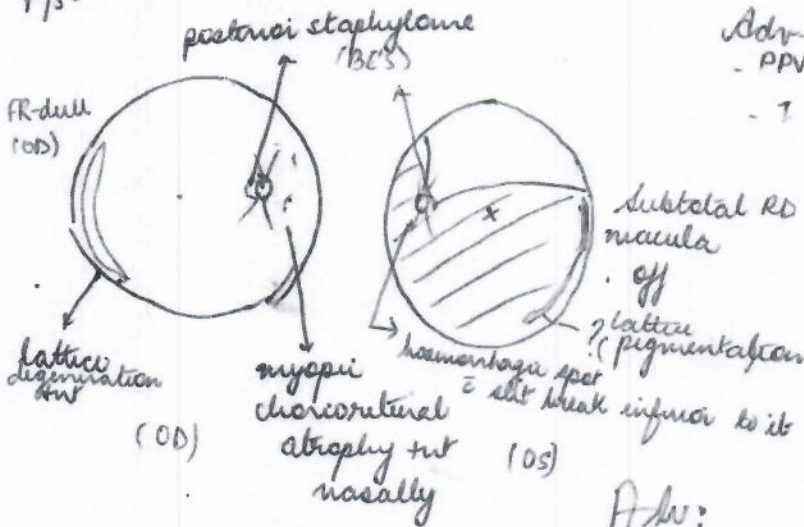 posterior staphyloma
(BES)
Adv-
- PPV
- ?
FR-dull
(OD)
Subtotal RD
macula
off
? lattice
(pigmentation
lattice
degeneration
+nt
myopic
chorioretinal
atrophy +nt
nasally
haemorrhagic spot
c̄ slit break inferior to it
(OD)
(OS)
Adv: